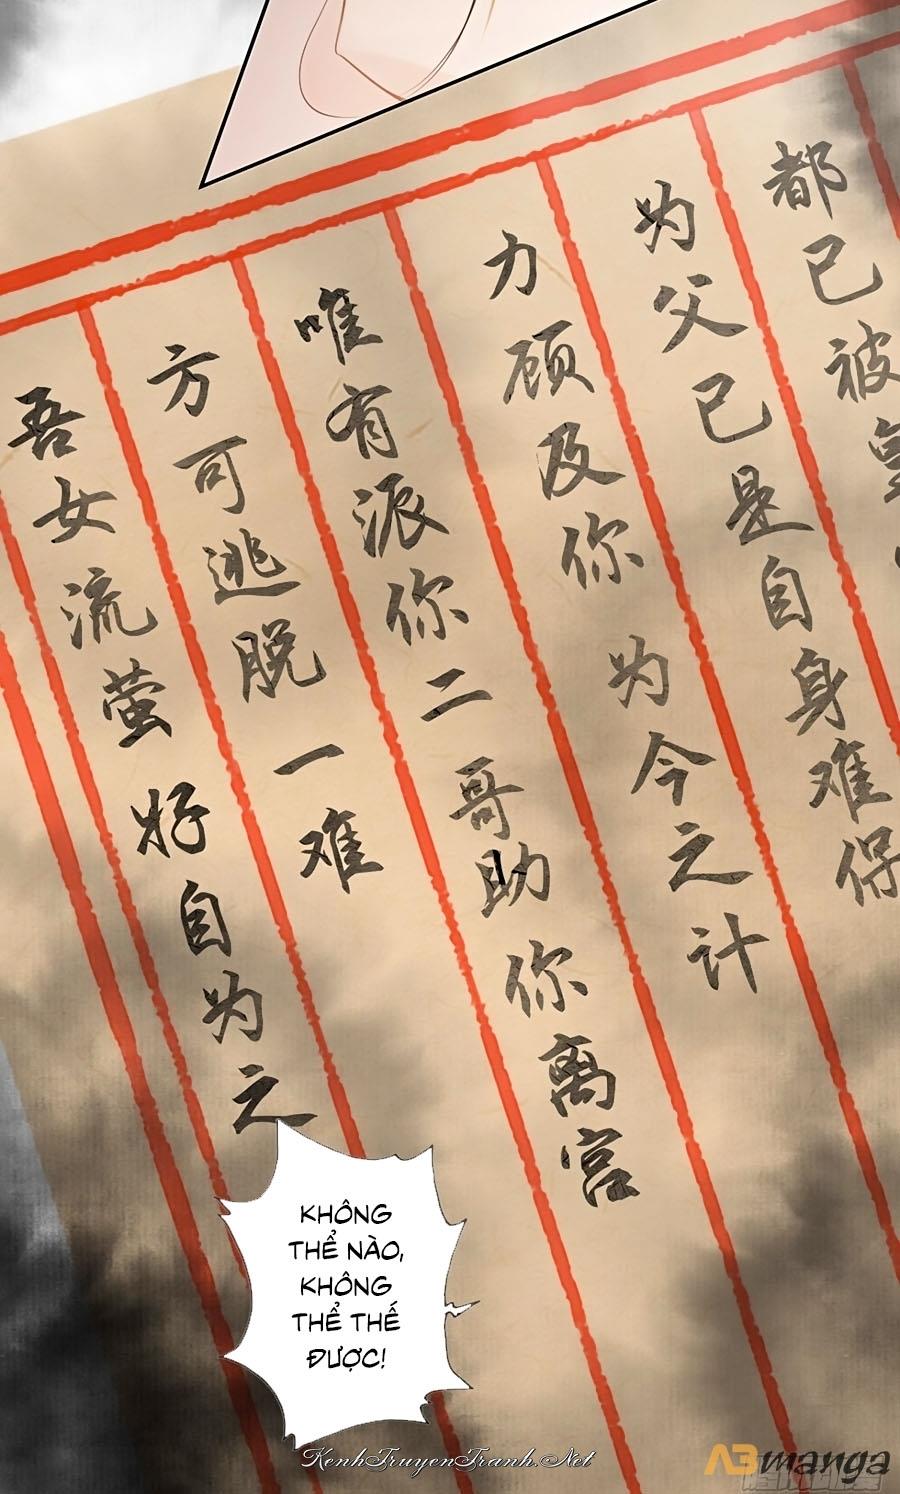 都已被皇
为父已是自身难保
力顾及你 为今之计
唯有派你二哥助你离宫
方可逃脱一难
吾女流萤 好自为之
KHÔNG
THỂ NÀO,
KHÔNG
THỂ THẾ
ĐƯỢC!
KenhTruyenTranh.Net
A3manga